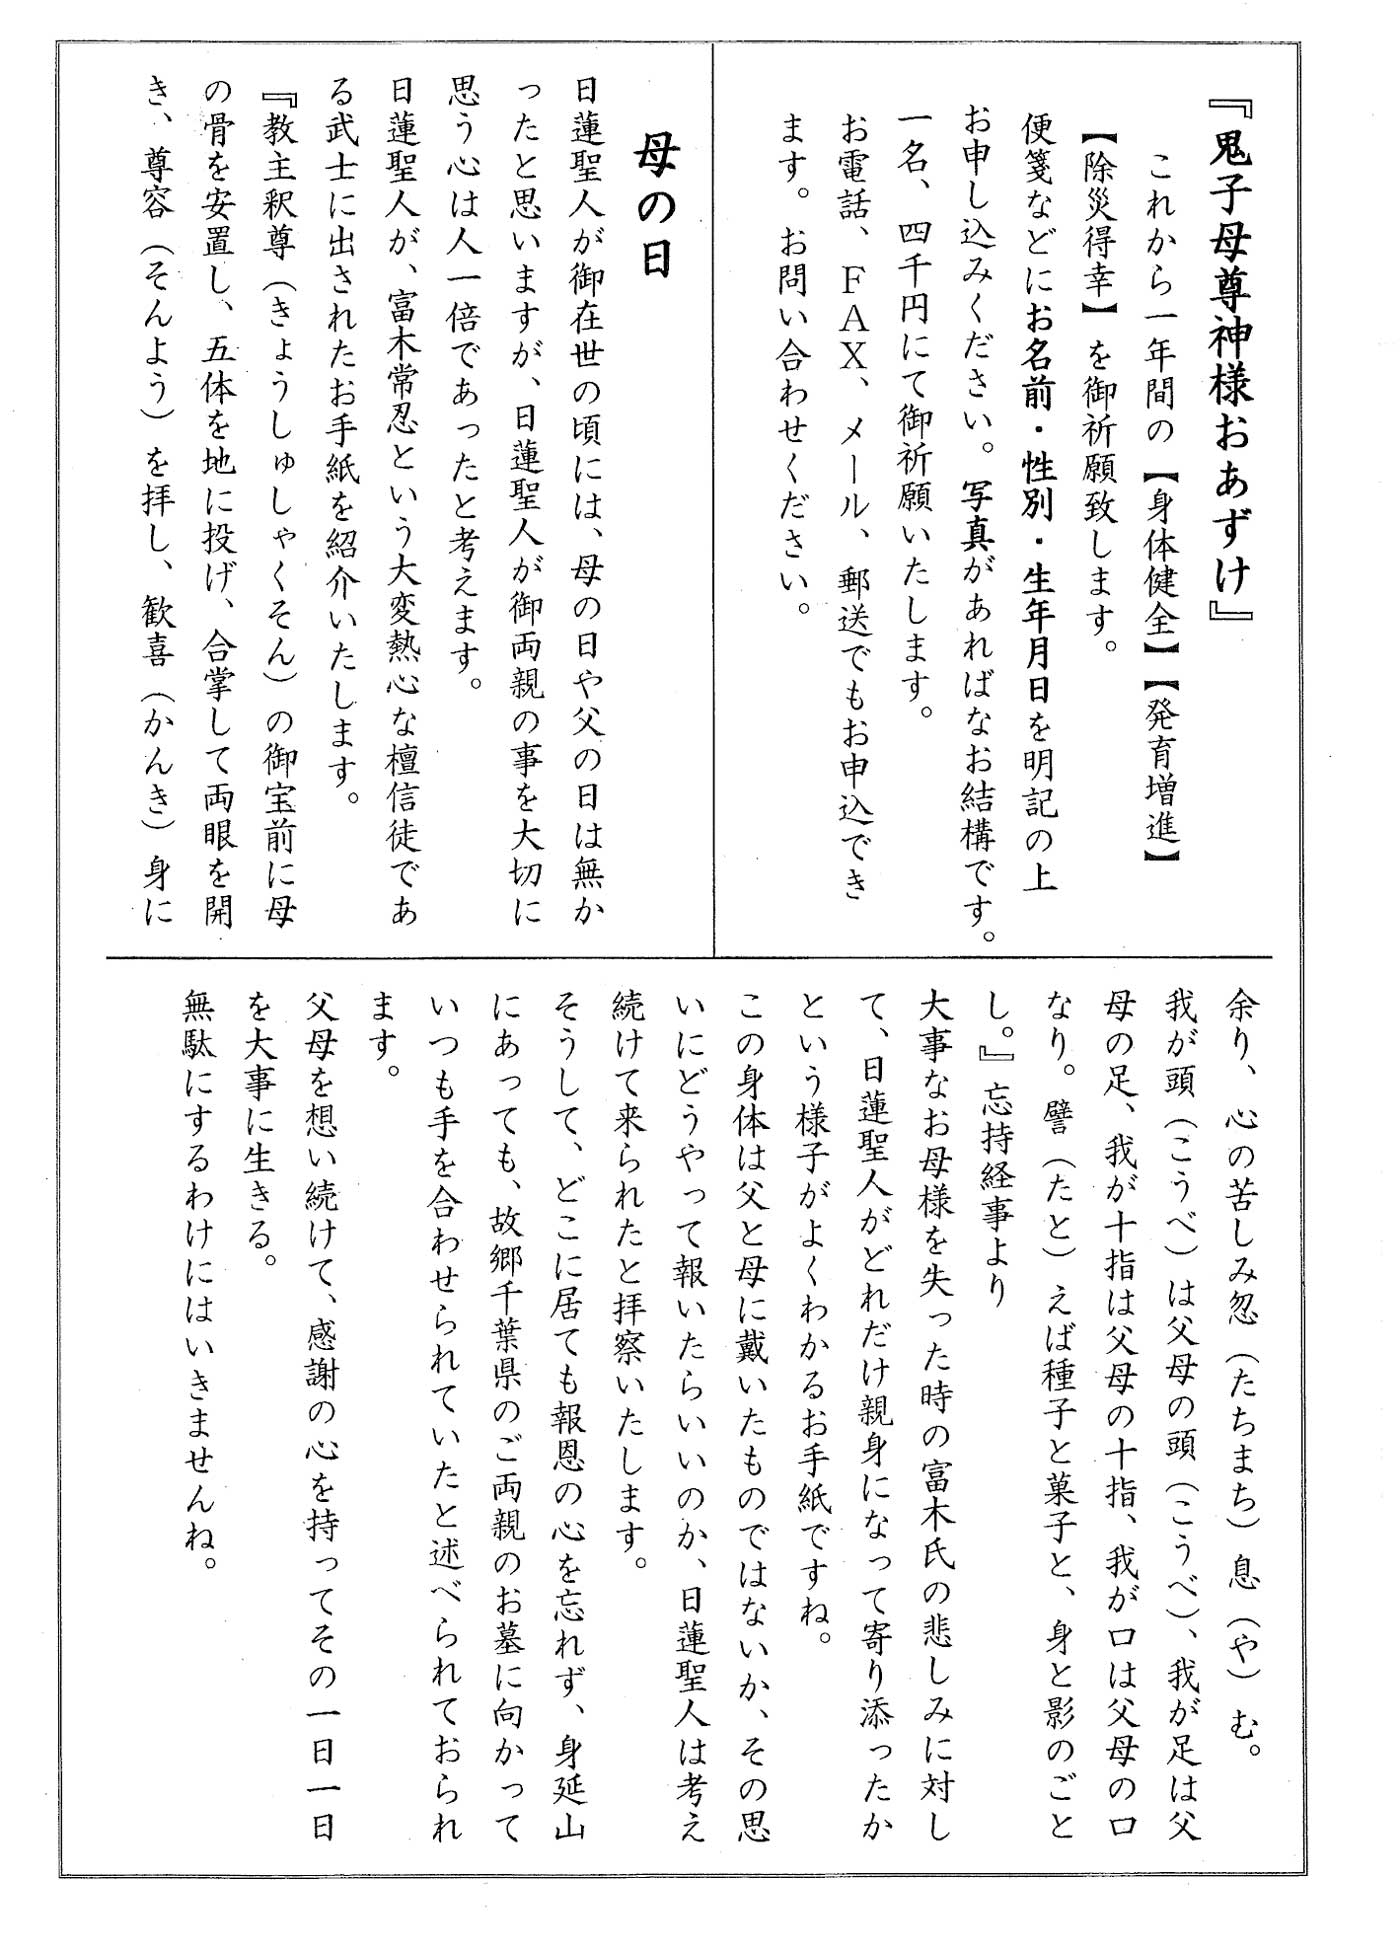 『鬼子母尊神様おあずけ』
これから一年間の【身体健全】【発育増進】
【除災得幸】を御祈願致します。
便箋などにお名前・性別・生年月日を明記の上
お申し込みください。写真があればなお結構です。
一名、四千円にて御祈願いたします。
お電話、ＦＡＸ、メール、郵送でもお申込でき
ます。お問い合わせください。
母の日
日蓮聖人が御在世の頃には、母の日や父の日は無か
ったと思いますが、日蓮聖人が御両親の事を大切に
思う心は人一倍であったと考えます。
日蓮聖人が、富木常忍という大変熱心な檀信徒であ
る武士に出されたお手紙を紹介いたします。
『教主釈尊（きょうしゅしゃくそん）の御宝前に母
の骨を安置し、五体を地に投げ、合掌して両眼を開
き、尊容（そんよう）を拝し、歓喜（かんき）身に
余り、心の苦しみ忽（たちまち）息（や）む。
我が頭（こうべ）は父母の頭（こうべ）、我が足は父
母の足、我が十指は父母の十指、我が口は父母の口
なり。譬（たと）えば種子と菓子と、身と影のごと
し。』忘持経事より
大事なお母様を失った時の富木氏の悲しみに対し
て、日蓮聖人がどれだけ親身になって寄り添ったか
という様子がよくわかるお手紙ですね。
この身体は父と母に戴いたものではないか、その思
いにどうやって報いたらいいのか、日蓮聖人は考え
続けて来られたと拝察いたします。
そうして、どこに居ても報恩の心を忘れず、身延山
にあっても、故郷千葉県のご両親のお墓に向かって
いつも手を合わせられていたと述べられておられ
ます。
父母を想い続けて、感謝の心を持ってその一日一日
を大事に生きる。
無駄にするわけにはいきませんね。